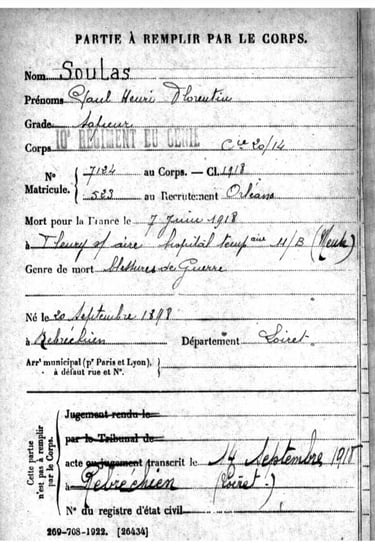 PARTIE À REMPLIR PAR LE CORPS.
Nom SOULAS
Prénoms Paul Henri Florentin
Grade Sapeur
Corps 10e RÉGIMENT DU GÉNIE Cie 20/14
N° Matricule. { 7124 au Corps. — Cl. 1918
523 au Recrutement Orléans
Mort pour la France le 7 Juin 1918
à Fleury s/ aire hopital tempaire 11/B (Meuse)
Genre de mort blessures de Guerre
Né le 20 Septembre 1898
à Rebréchien Département Loiret.
Arrt municipal (pr Paris et Lyon),
à défaut rue et N°.
Cette partie n'est pas à remplir par le Corps.
Jugement rendu le
par le Tribunal de
acte ou jugement transcrit le 14 Septembre 1918
à Rebréchien (Loiret.)
N° du registre d'état civil
269-708-1922. [26434]